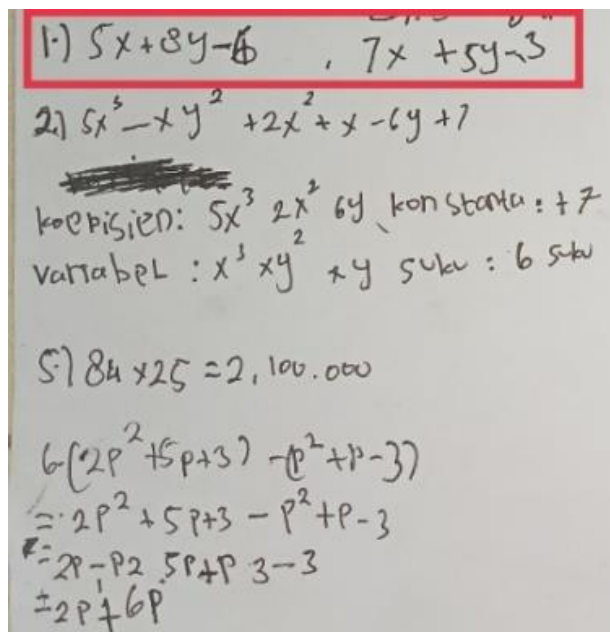 1.) 5x+8y-6 , 7x +5y-3
2.) 5x³ - xy² +2x² + x - 6y +7
koepisien: 5x³ 2x² 6y konstanta: +7
variabel : x³ xy² xy suku : 6 suku
5.) 84 x25 = 2,100.000
6 (2p²+5p+3) -(p²+p-3)
= 2p² + 5p+3 - p²+p-3
= 2p-p2 5p+p 3-3
= 2p+6p